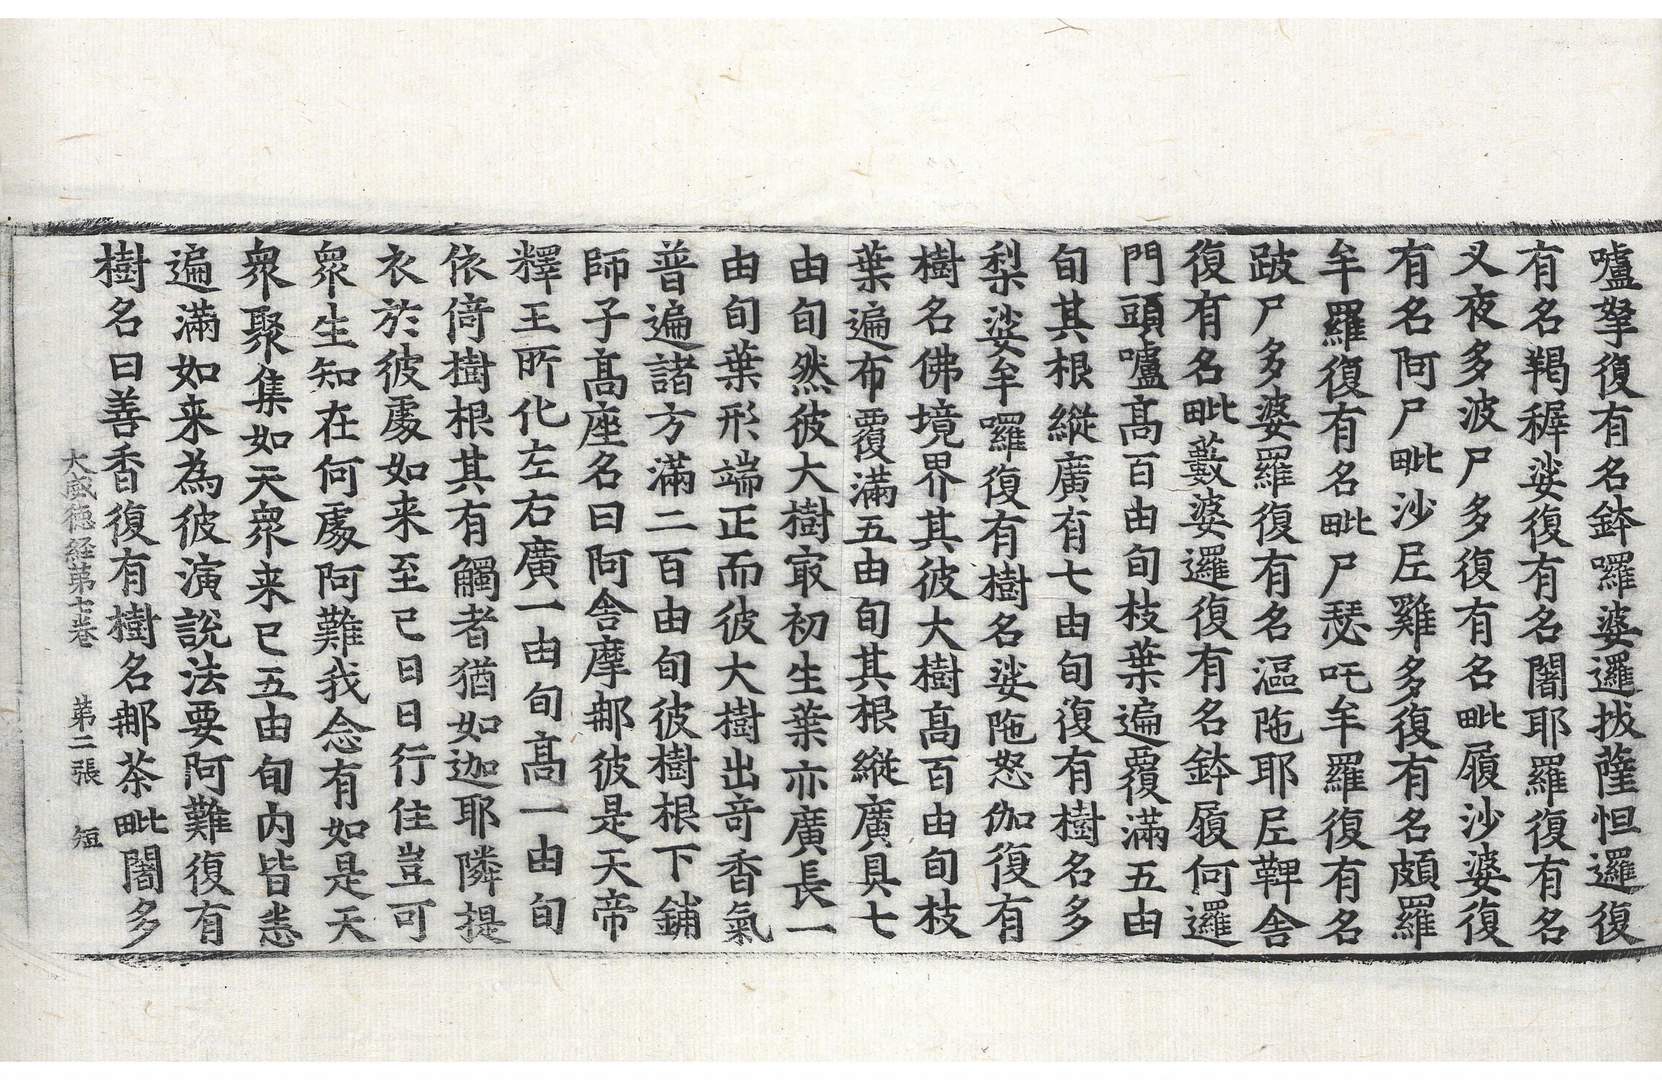 嚧拏復有名鉢囉婆邏拔薩怛邏復
有名羯稺娑復有名闍耶羅復有名
叉夜多波尸多復有名毗履沙婆復
有名阿尸毗沙𡰱難多復有名頗羅
牟羅復有名毗尸瑟吒牟羅復有名
跛尸多婆羅復有名漚陁耶𡰱鞞舍
復有名毗藪婆邏復有名鉢履何邏
門頭嚧高百由旬枝葉遍覆滿五由
旬其根縱廣有七由旬復有樹名多
梨娑牟囉復有樹名娑陁怒伽復有
樹名佛境界其彼大樹高百由旬枝
葉遍布覆滿五由旬其根縱廣具七
由旬然彼大樹冣初生葉亦廣長一
由旬葉形端正而彼大樹出竒香氣
普遍諸方滿二百由旬彼樹根下鋪
師子高座名曰阿舍摩那彼是天帝
釋王所化左右廣一由旬高一由旬
依倚樹根其有觸者猶如迦耶隣提
衣於彼處如来至已日日行住豈可
衆生知在何處阿難我念有如是天
衆聚集如天衆来已五由旬内皆悉
遍滿如来為彼演說法要阿難復有
樹名曰善香復有樹名那茶毗闍多
大威徳経第七卷 第二張 短